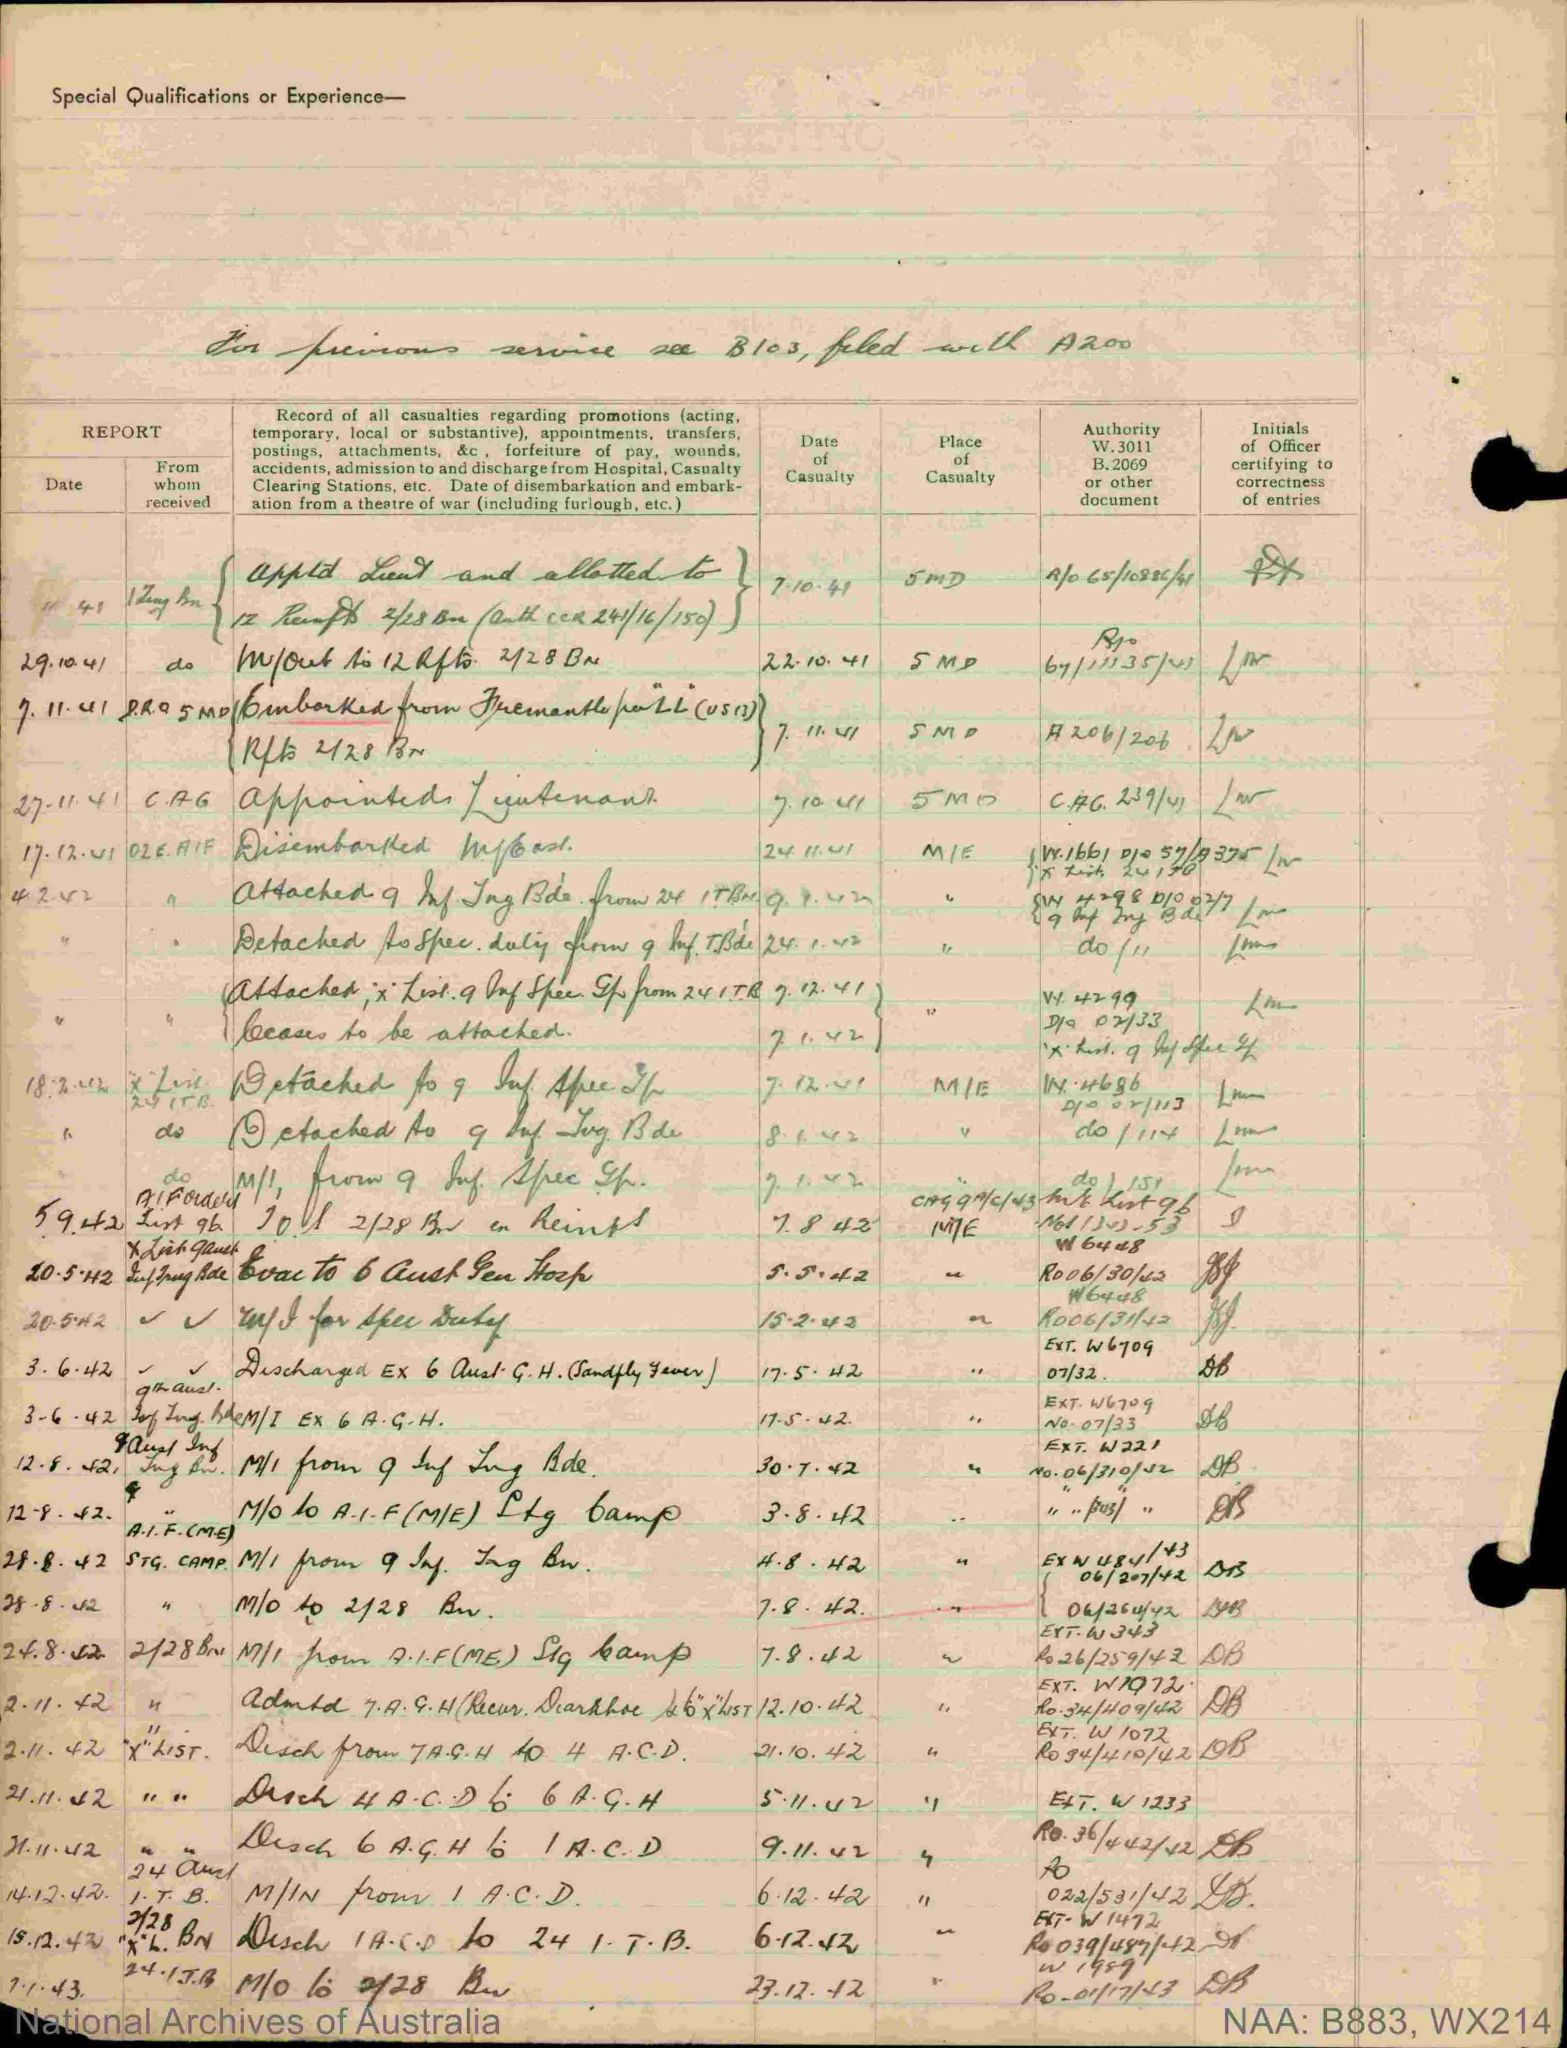 Special Qualifications or Experience—
For previous service see B103, filed with A200
REPORT
Date
From whom received
Record of all casualties regarding promotions (acting,
temporary, local or substantive), appointments, transfers,
postings, attachments, &c., forfeiture of pay, wounds,
accidents, admission to and discharge from Hospital, Casualty
Clearing Stations, etc. Date of disembarkation and embark-
ation from a theatre of war (including furlough, etc.)
Date of Casualty
Place of Casualty
Authority W.3011 B.2069 or other document
Initials of Officer certifying to correctness of entries
Apptd Lieut and allotted to 7.10.41 5MD A/O 65/10886/41
41 1 Tng Bn 12 Reinfts 2/28 Bn (Auth CCR 241/16/150)
29.10.41 do M/Out to 12 Rfts. 2/28 Bn 22.10.41 5 MD 67/11135/41
7.11.41 D.R.O 5 MD Embarked from Fremantle per "LL" (US13) 7.11.41 5 MD A206/206
Rfts 2/28 Bn
27.11.41 C.A.G Appointeds Lieutenant 7.10.41 5 MD C.AG. 239/41
17.12.41 02E. AIF Disembarked M/East. 24.11.41 M/E W.1661 D/O 57/A375
"X" List. 24 ITB
4.2.42 " Attached 9 Inf. Tng Bde. from 24 I.T.Bn. 9.1.42 " W 4298 D/O 02/7
9 Inf Tng Bde
" " Detached to Spec. duty from 9 Inf. T.Bde 24.1.42 " do /11
Attached, 'X' List. 9 Inf Spec. Gp from 24 I.T.B 7.12.41 W. 4299
" " Ceases to be attached. 7.1.42 " D/O 02/33
'X' List. 9 Inf Spec Gp
18.2.42 "X" List 24 I.T.B. Detached to 9 Inf. Spec Gp 7.12.41 M/E W.4686
D/O 02/113
" do Detached to 9 Inf. Tng. Bde 8.1.42 " do / 114
" do M/I, from 9 Inf. Spec Gp. 7.1.42 " do / 151
5.9.42 A.I.F Orders List 96 T.O.S 2/28 Bn ex Reinfts 7.8.42 M/E
W6448
20.5.42 X List 9 Aust Inf Trng Bde Evac to 6 Aust Gen Hosp 5.5.42 " Ro 06/30/42
W6448
20.5.42 ✓ ✓ M/I for Spec Duty 15.2.42 " Ro 06/31/42
EXT. W6709
3.6.42 ✓ ✓ Discharged Ex 6 Aust. G.H. (Sandfly Fever) 17.5.42 " 07/32. DB
3-6-42 9th Aust. Inf Tng. Bde M/I Ex 6 A.G.H. 17.5.42. " EXT. W6709 No. 07/33 DB
12.8.42. 9 Aust Inf Tng Bn. M/I from 9 Inf Tng Bde. 30.7.42 " EXT. W221 No. 06/310/42 DB
12-8.42. " M/O to A.I.F (M/E) Stg Camp 3.8.42 " DB
28.8.42 A.I.F. (M.E) STG. CAMP. M/I from 9 Inf. Tng Bn. 4.8.42 " Ex W 484/43 06/207/42 DB
28.8.42 " M/O to 2/28 Bn. 7.8.42. " 06/264/42 DB
24.8.42 2/28 Bn M/I from A.I.F (M.E.) Stg Camp 7.8.42 " EXT. W 343 Ro 26/259/42 DB
2.11.42 " Admtd 7.A.G.H (Recur. Diarrhoe) to "X" LIST 12.10.42 " EXT. W1072 Ro. 34/409/42 DB
2.11.42 "X" LIST. Disch from 7 A.G.H to 4 A.C.D. 21.10.42 " EXT. W 1072 Ro 34/410/42 DB
21.11.42 " " Disch 4 A.C.D to 6 A.G.H 5.11.42 " EXT. W 1233
21.11.42 " " Disch 6 A.G.H to 1 A.C.D 9.11.42 " Ro. 36/442/42 DB
14.12.42. 24 Aust I.T.B. M/IN from 1 A.C.D. 6.12.42 " Ro 022/531/42 DB.
15.12.42 2/28 Bn "X" L. Disch 1 A.C.D to 24 I.T.B. 6.12.42 " EXT. W 1472 Ro 039/487/42
7.1.43. 24.I.T.B M/O to 2/28 Bn 23.12.42 " W 1989 Ro. 01/17/43 DB
National Archives of Australia
NAA: B883, WX214